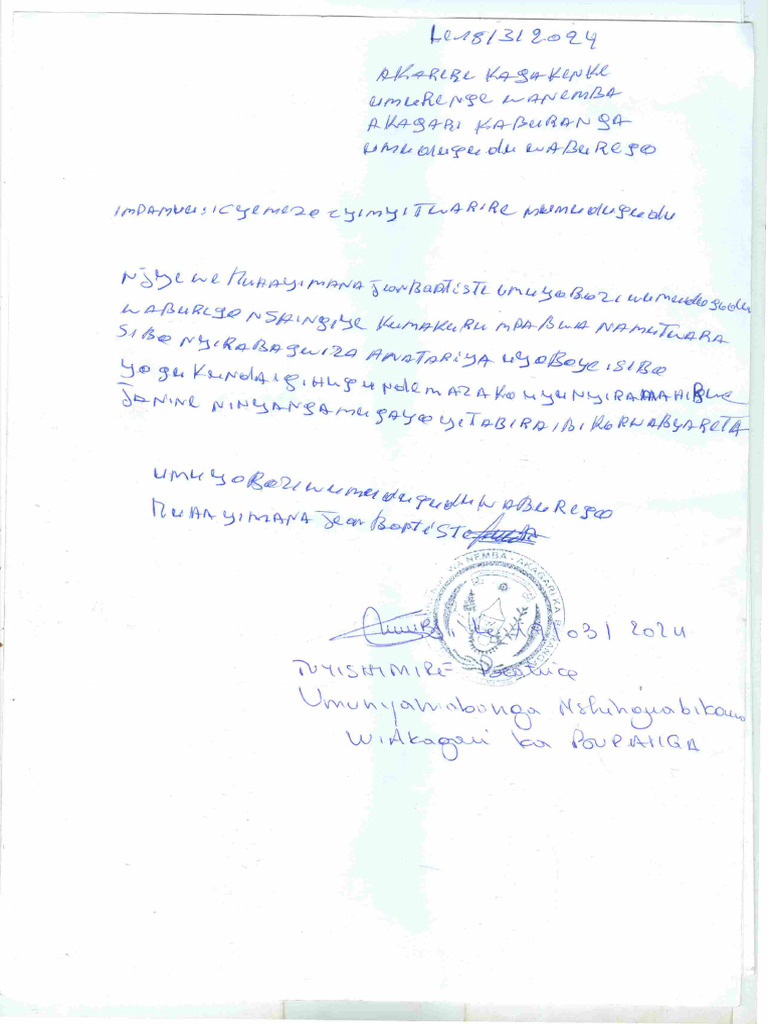 Le 18/3/2024
AKARERE KAGAKENKE
UMURENGE WANEMBA
AKAGARI KABURANGA
UMUDUGUDU WABUREGO
IMPAMVU: ICYEMEZO CYIMYITWARIRE MUMUDUGUDU
NJYEWE MUHAYIMANA Jean Baptiste UMUYOBOZI WUMUDUGUDU
WABUREGO NSHINGIYE KUMAKURU MPABWA NAMUTWARA
SIBO NYIRABAGWIZA ANATARIYA UYOBOYE ISIBO
YOGUKUNDA IGIHUGU NDEMAZAKO UYU
JANINE NINYANGAMUGAYO YITABIRA IBIKORWA BYARETA
UMUYOBOZI WUMUDUGUDU WABUREGO
MUHAYIMANA Jean Baptiste
WA NEMBA - AKAGARI KA BURANGA
Le /03/2024
TUYISHIMIRE Beatrice
Umunyamabanga Nshingwabikorwa
W'Akagari ka BURANGA